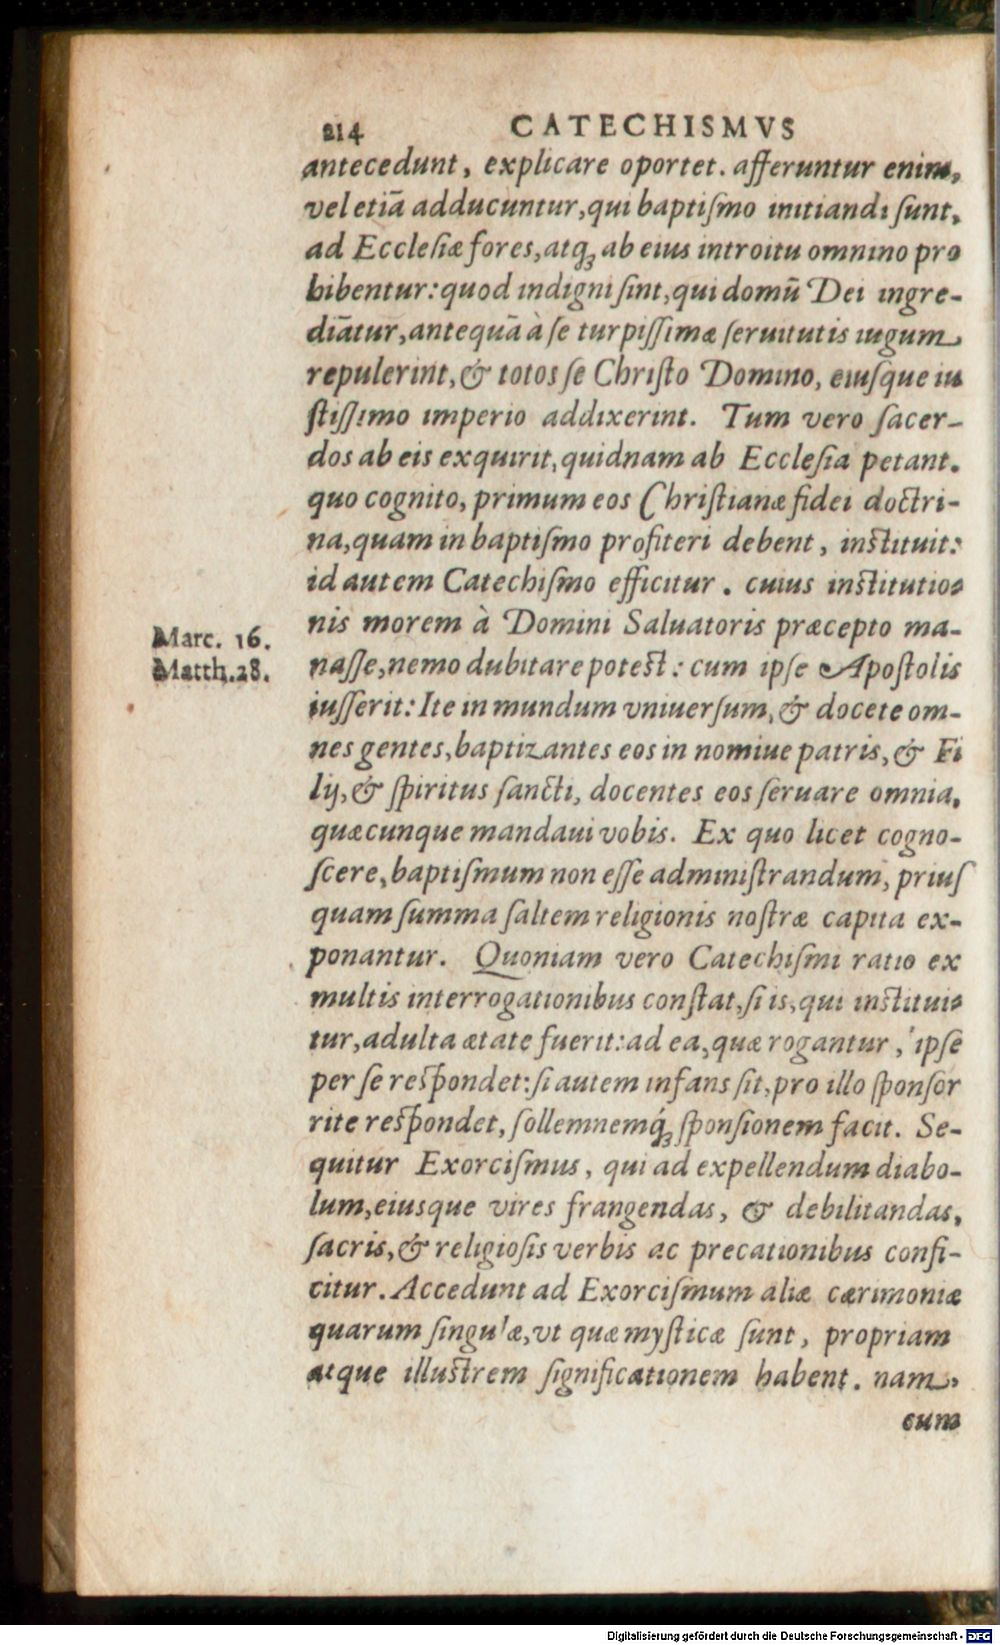 214 CATECHISMVS
antecedunt, explicare oportet. afferuntur enim,
vel etiā adducuntur, qui baptiſmo initiandi ſunt,
ad Eccleſiæ fores, atq; ab eius introitu omnino pro
hibentur: quod indigni ſint, qui domū Dei ingre-
diātur, antequā à ſe turpiſſimæ ſeruitutis iugum
repulerint, & totos ſe Chriſto Domino, eiuſque iu
ſtiſſimo imperio addixerint. Tum vero ſacer-
dos ab eis exquirit, quidnam ab Eccleſia petant.
quo cognito, primum eos Chriſtianæ fidei doctri-
na, quam in baptiſmo profiteri debent, inſtituit:
id autem Catechiſmo efficitur. cuius inſtitutio-
nis morem à Domini Saluatoris præcepto ma-
Marc. 16.
Matth. 28.
naſſe, nemo dubitare poteſt: cum ipſe Apoſtolis
iuſſerit: Ite in mundum vniuerſum, & docete om-
nes gentes, baptizantes eos in nomiue patris, & Fi
lij, & ſpiritus ſancti, docentes eos ſeruare omnia,
quæcunque mandaui vobis. Ex quo licet cogno-
ſcere, baptiſmum non eſſe adminiſtrandum, priuſ
quam ſumma ſaltem religionis noſtræ capita ex-
ponantur. Quoniam vero Catechiſmi ratio ex
multis interrogationibus conſtat, ſi is, qui inſtitui-
tur, adulta ætate fuerit: ad ea, quæ rogantur, ipſe
per ſe reſpondet: ſi autem infans ſit, pro illo ſponſor
rite reſpondet, ſollemnemq́; ſponſionem facit. Se-
quitur Exorciſmus, qui ad expellendum diabo-
lum, eiusque vires frangendas, & debilitandas,
ſacris, & religioſis verbis ac precationibus confi-
citur. Accedunt ad Exorciſmum aliæ cærimoniæ
quarum ſingulæ, vt quæ myſticæ ſunt, propriam
atque illuſtrem ſignificationem habent. nam,
cum
Digitalisierung gefördert durch die Deutsche Forschungsgemeinschaft - DFG